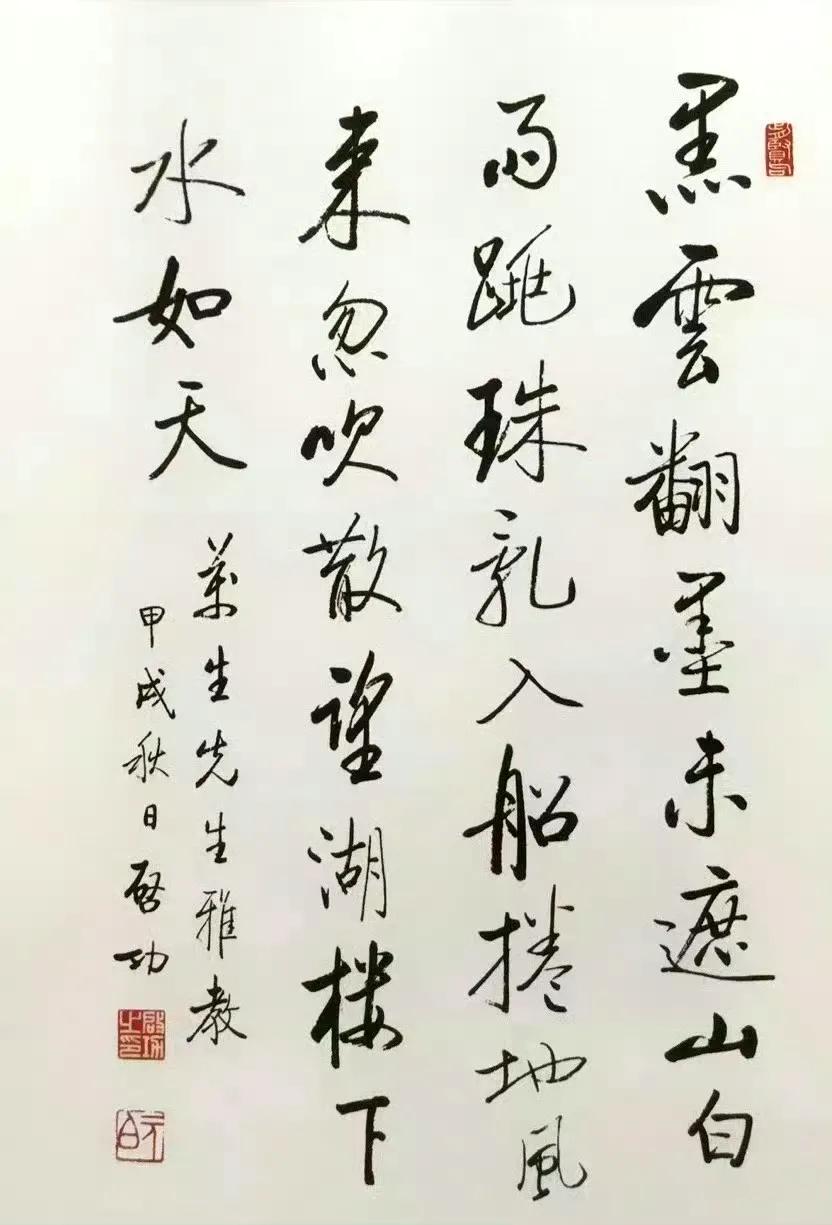 黑雲翻墨未遮山白
雨跳珠乱入船捲地風
来忽吹散望湖楼下
水如天
萬生先生雅教
甲戌秋日啓功
啟功之印